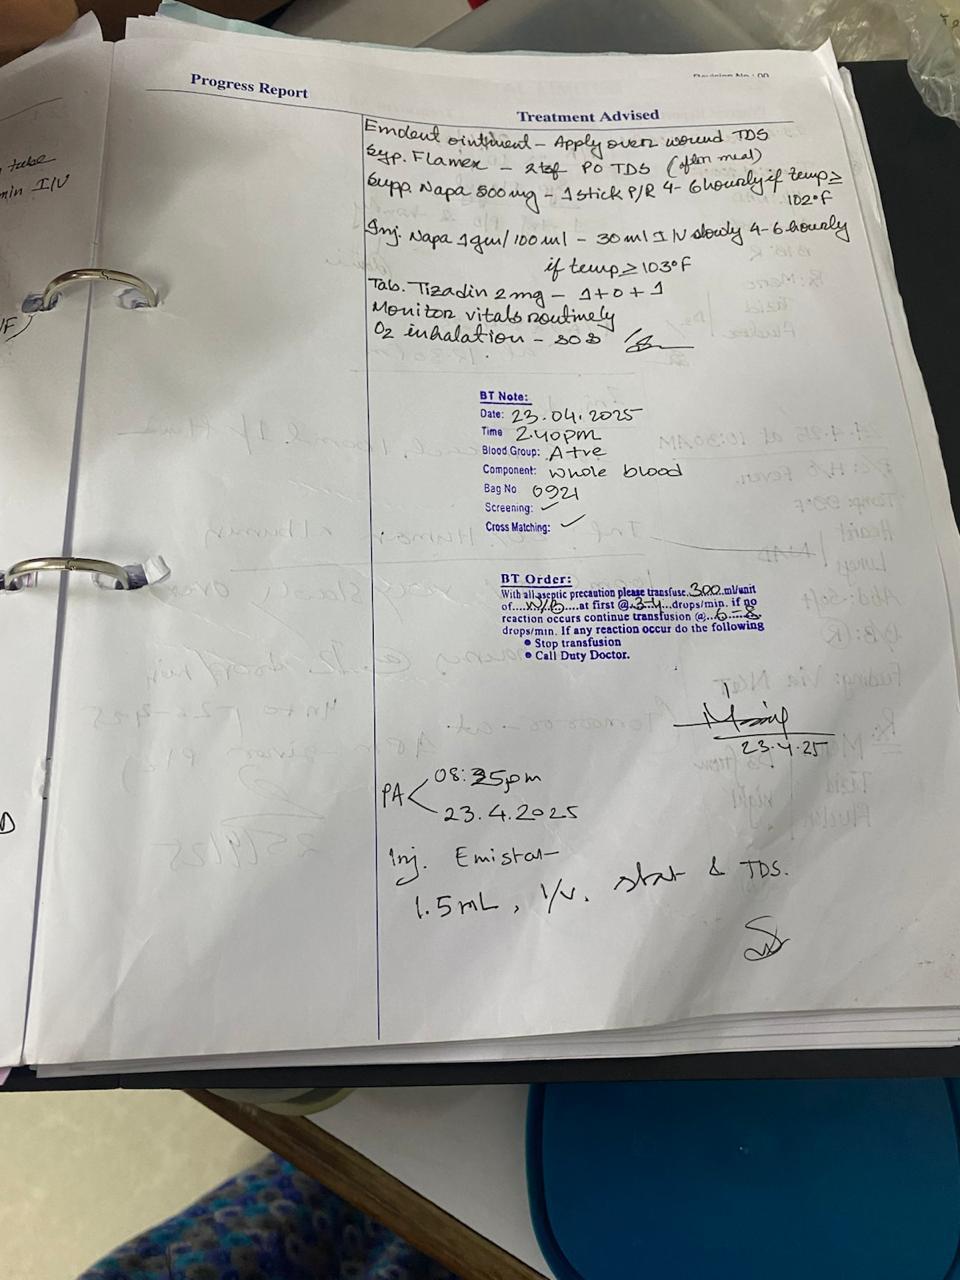 tube
min I/V
Progress Report
Treatment Advised
ointment - Apply over wound TDS
Syp. Flamex - 2 tsf PO TDS (after meal)
Supp. Napa 500 mg - 1 stick P/R 4-6 hourly if temp ≥
102°F
Inj. Napa 1gm/100 ml - 30 ml I/V slowly 4-6 hourly
if temp ≥ 103°F
Tab. Tizadin 2 mg - 1+0+1
Monitor vitals routinely
O2 inhalation - SOS
BT Note:
Date: 23.04.2025
Time 2.40pm
Blood Group: A+ve
Component: whole blood
Bag No 0921
Screening: ✓
Cross Matching: ✓
BT Order:
With all aseptic precaution please transfuse.300.ml/unit
of....W/B....at first @.3-4...drops/min. if no
reaction occurs continue transfusion @...6-8
drops/min. If any reaction occur do the following
• Stop transfusion
• Call Duty Doctor.
23.4.25
PA 08:35pm
23.4.2025
Inj. Emistat
1.5 mL, I/V. stat & TDS.